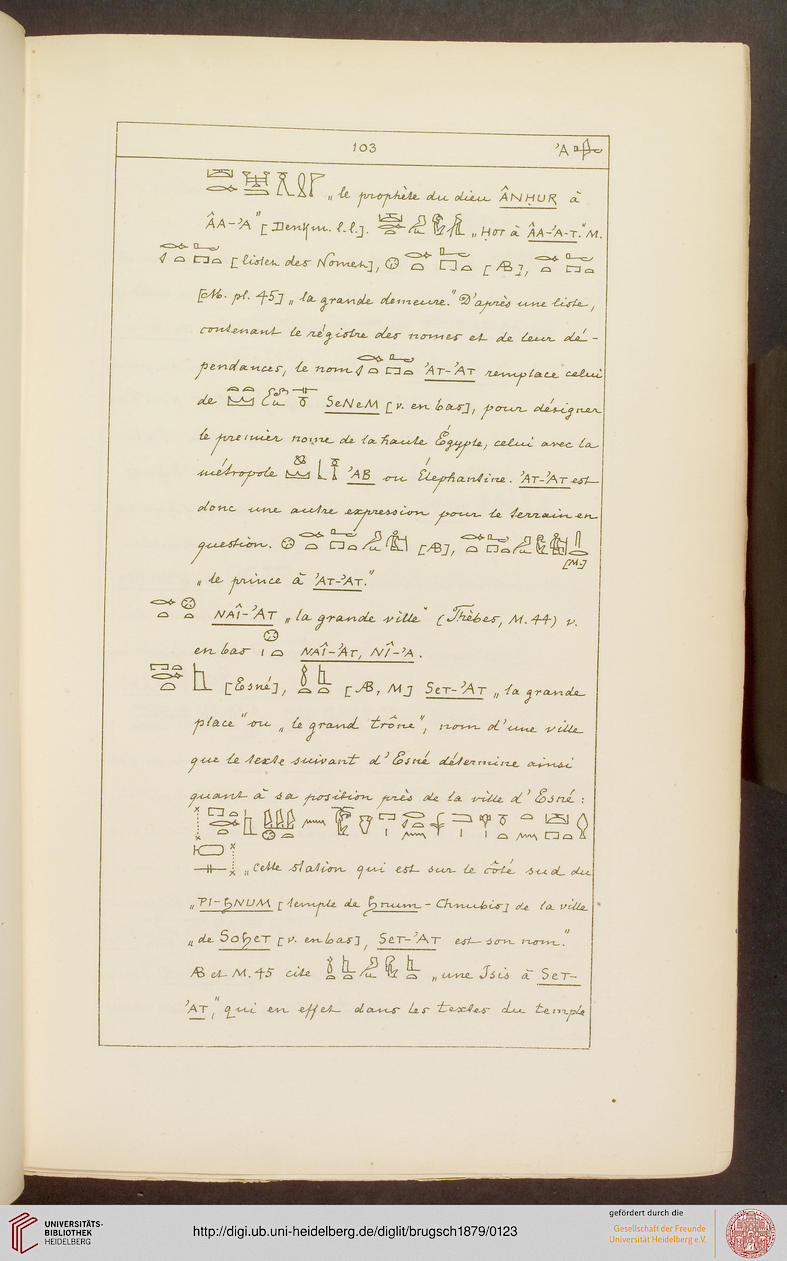 103 'A
„ le prophète du dieu ÂNḤUR à
ÂA-'A" [Denkm. l.l.]. „ ḤOT à ÂA-'A-T." M.
[listes des Nomes], [Æ],
[M. pl. 45] „ la grande demeure." D'après une liste,
contenant le régistre des nomes et de leur dé-
pendances, le nom 'AT-'AT remplace celui
de SeNeM [v. en bas], pour désigner
le premier nome de la haute Égypte, celui avec la
métropole 'AB ou Élephantine. 'AT-'AT est
donc une autre expression pour le terrain en
question. [Æ], [M.]
„ le prince à 'AT-'AT."
NAÎ-'AT „ la grande ville" (Thèbes, M. 44) v.
en bas NAÎ-'AT, NÎ-'A.
[Esné], [Æ, M] SeT-'AT „ la grande
place" ou „ le grand trône", nom d'une ville
que le texte suivant d'Esné détermine ainsi
quant à sa position près de la ville d'Esné :
„ cette station qui est sur le côté sud du
„ PI-ḪNUM [temple de Ḫnum - Chnubis] de la ville
„ de SoḪeT [v. en bas], SeT-'AT est son nom."
Æ et M. 45 cite „ une Isis à SeT-
'AT", qui en effet dans les textes du temple
UNIVERSITÄTS-
BIBLIOTHEK
HEIDELBERG
http://digi.ub.uni-heidelberg.de/diglit/brugsch1879/0123
gefördert durch die
Gesellschaft der Freunde
Universität Heidelberg e.V.